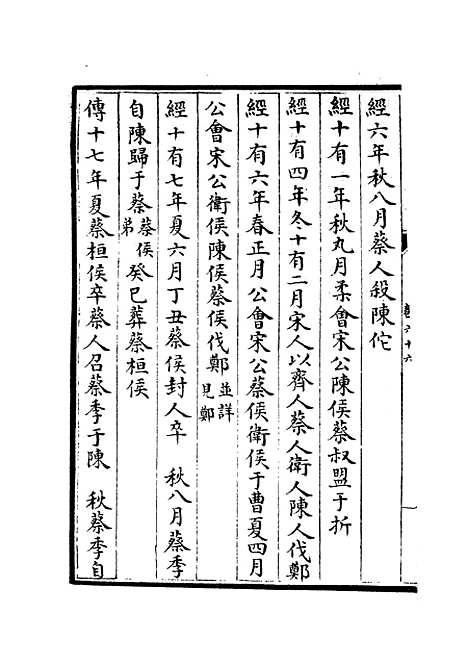 經六年秋八月蔡人殺陳佗
經十有一年秋九月柔會宋公陳侯蔡叔盟于折
經十有四年冬十有二月宋人以齊人蔡人衛人陳人伐鄭
經十有六年春正月公會宋公蔡侯衛侯于曹夏四月
公會宋公衛侯陳侯蔡侯伐鄭並詳見鄭
經十有七年夏六月丁丑蔡侯封人卒　秋八月蔡季
自陳歸于蔡蔡侯弟癸巳葬蔡桓侯
傳十七年夏蔡桓侯卒蔡人召蔡季于陳　秋蔡季自